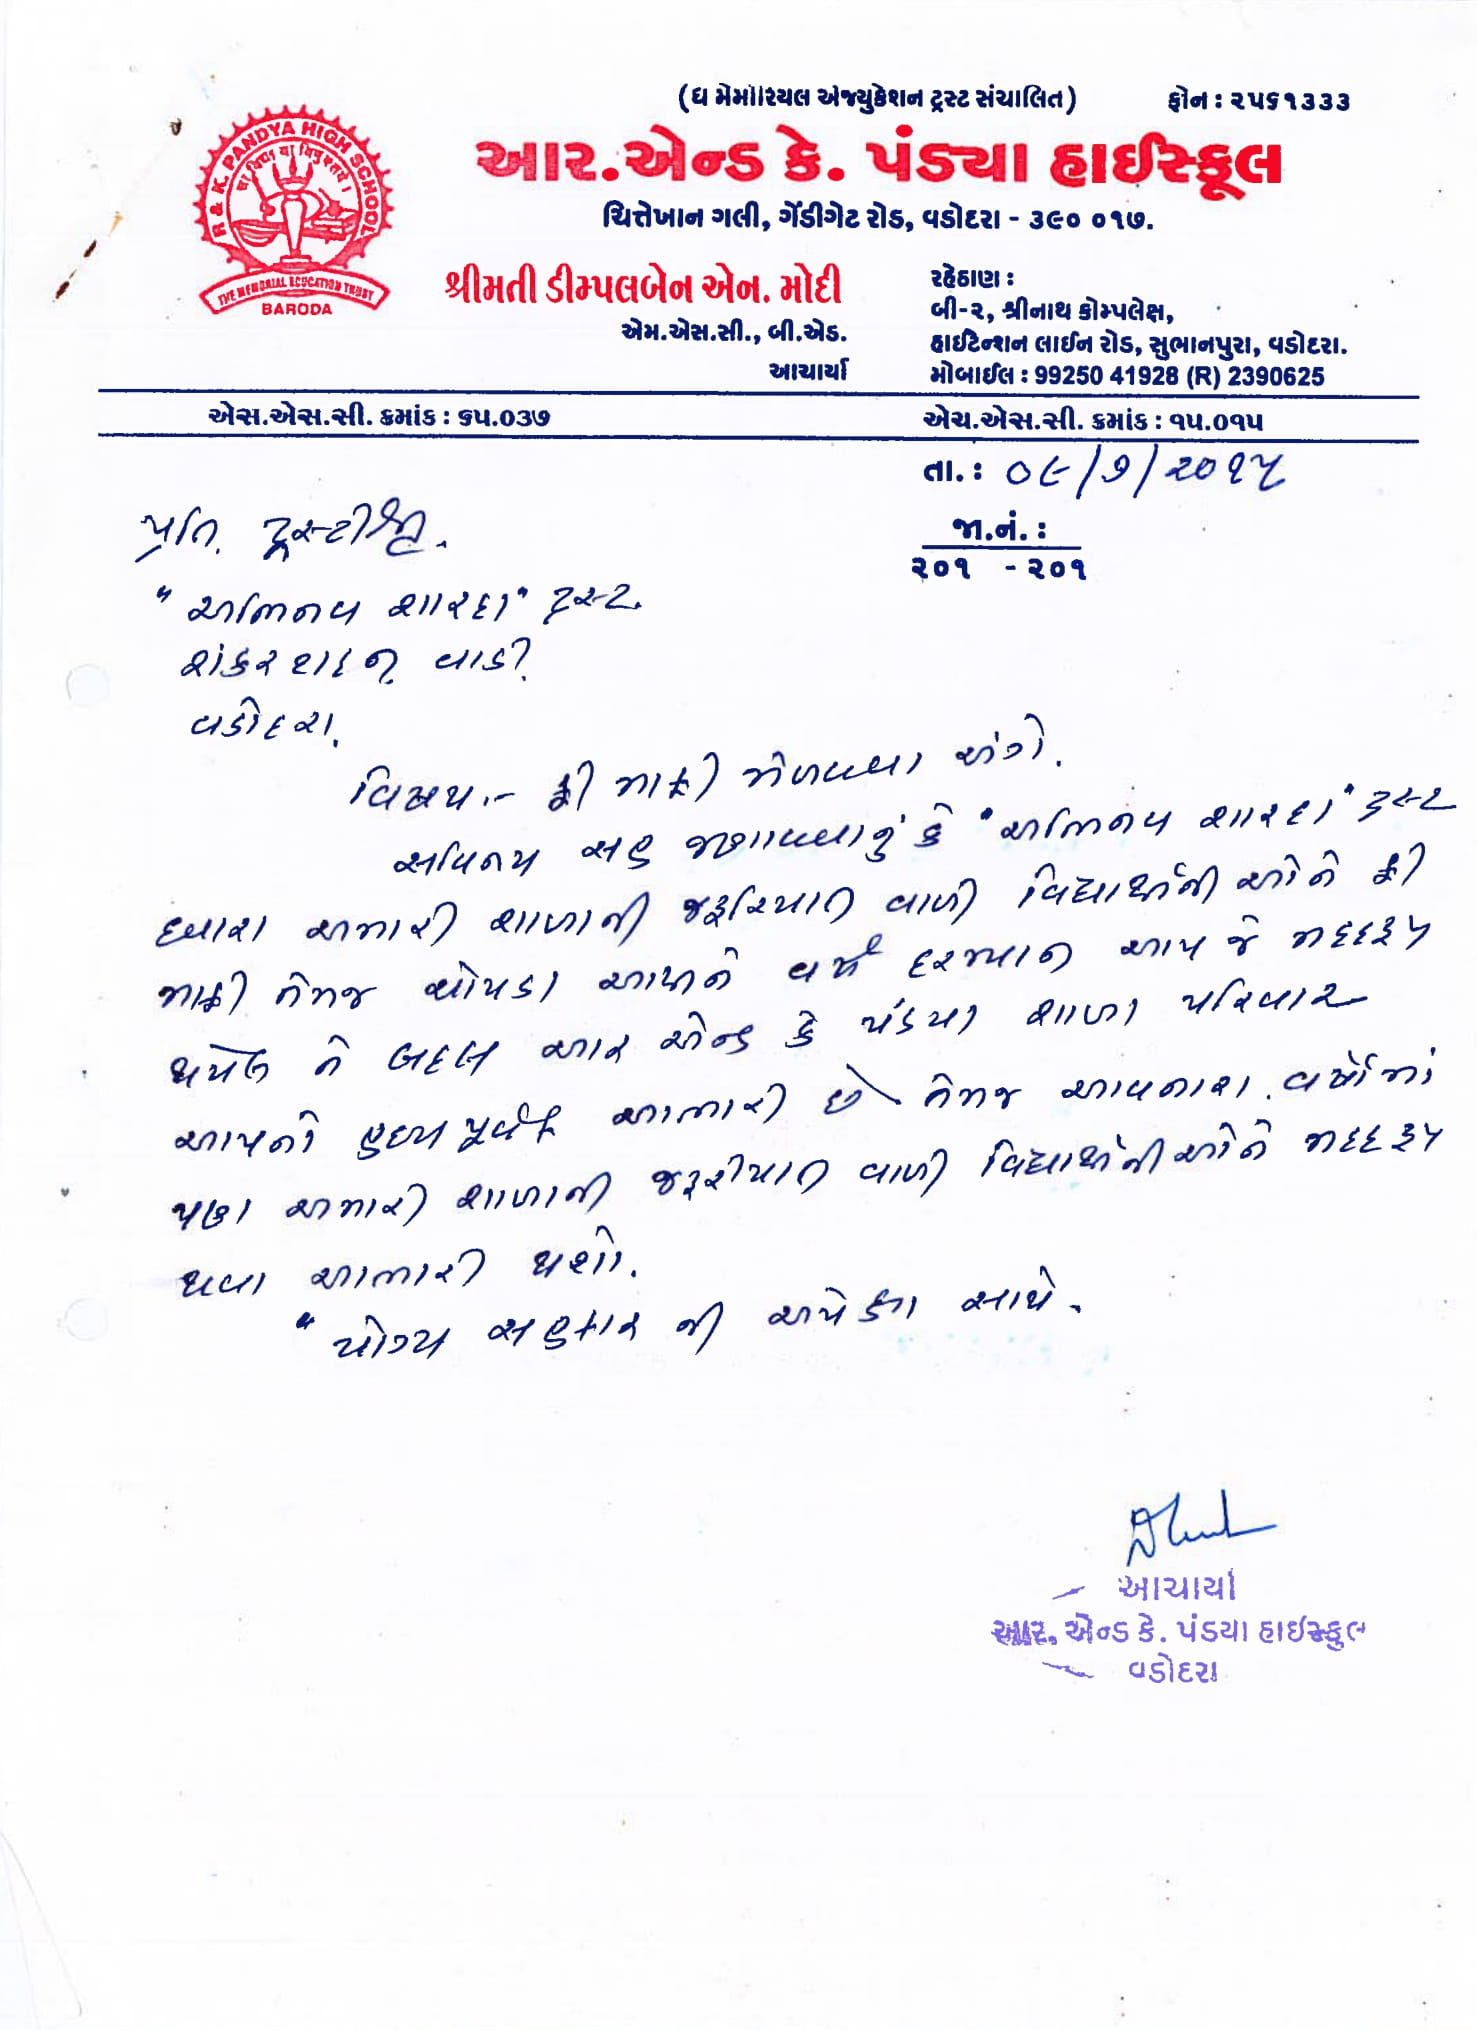 (ધ મેમોરિયલ એજ્યુકેશન ટ્રસ્ટ સંચાલિત) ફોન : ૨૫૬૧૩૩૩
આર.એન્ડ કે. પંડ્યા હાઈસ્કૂલ
ચિત્તેખાન ગલી, ગેંડીગેટ રોડ, વડોદરા - ૩૯૦ ૦૧૭.
R & K. PANDYA HIGH SCHOOL
THE MEMORIAL EDUCATION TRUST
BARODA
શ્રીમતી ડીમ્પલબેન એન. મોદી
એમ.એસ.સી., બી.એડ.
આચાર્યા
રહેઠાણ :
બી-૨, શ્રીનાથ કોમ્પલેક્ષ,
હાઈટેન્શન લાઈન રોડ, સુભાનપુરા, વડોદરા.
મોબાઈલ : 99250 41928 (R) 2390625
એસ.એસ.સી. ક્રમાંક : ૬૫.૦૩૭ એચ.એસ.સી. ક્રમાંક : ૧૫.૦૧૫
તા. : ૦૯/૭/૨૦૧૫
જા.નં. :
૨૦૧ - ૨૦૧
પ્રતિ, ટ્રસ્ટીશ્રી.
"અભિનવ શારદા" ટ્રસ્ટ.
વાડી
વડોદરા.
વિષય :- ફી માફી મેળવવા અંગે.
સવિનય સહ જણાવવાનું કે "અભિનવ શારદા" ટ્રસ્ટ
દ્વારા અમારી શાળાની જરૂરિયાત વાળી વિદ્યાર્થીનીઓને ફી
માફી તેમજ ચોપડા આપીને વર્ષ દરમ્યાન આપ જે મદદરૂપ
થયેલ તે બદલ આર એન્ડ કે પંડયા શાળા પરિવાર
આપનો હૃદય પૂર્વક આભારી છે તેમજ આવનારા વર્ષોમાં
પણ અમારી શાળાની જરૂરીયાત વાળી વિદ્યાર્થીનીઓને મદદરૂપ
થવા આભારી થશો.
"યોગ્ય સહકાર ની અપેક્ષા સાથે.
આચાર્યા
આર. એન્ડ કે. પંડયા હાઈસ્કુલ
વડોદરા